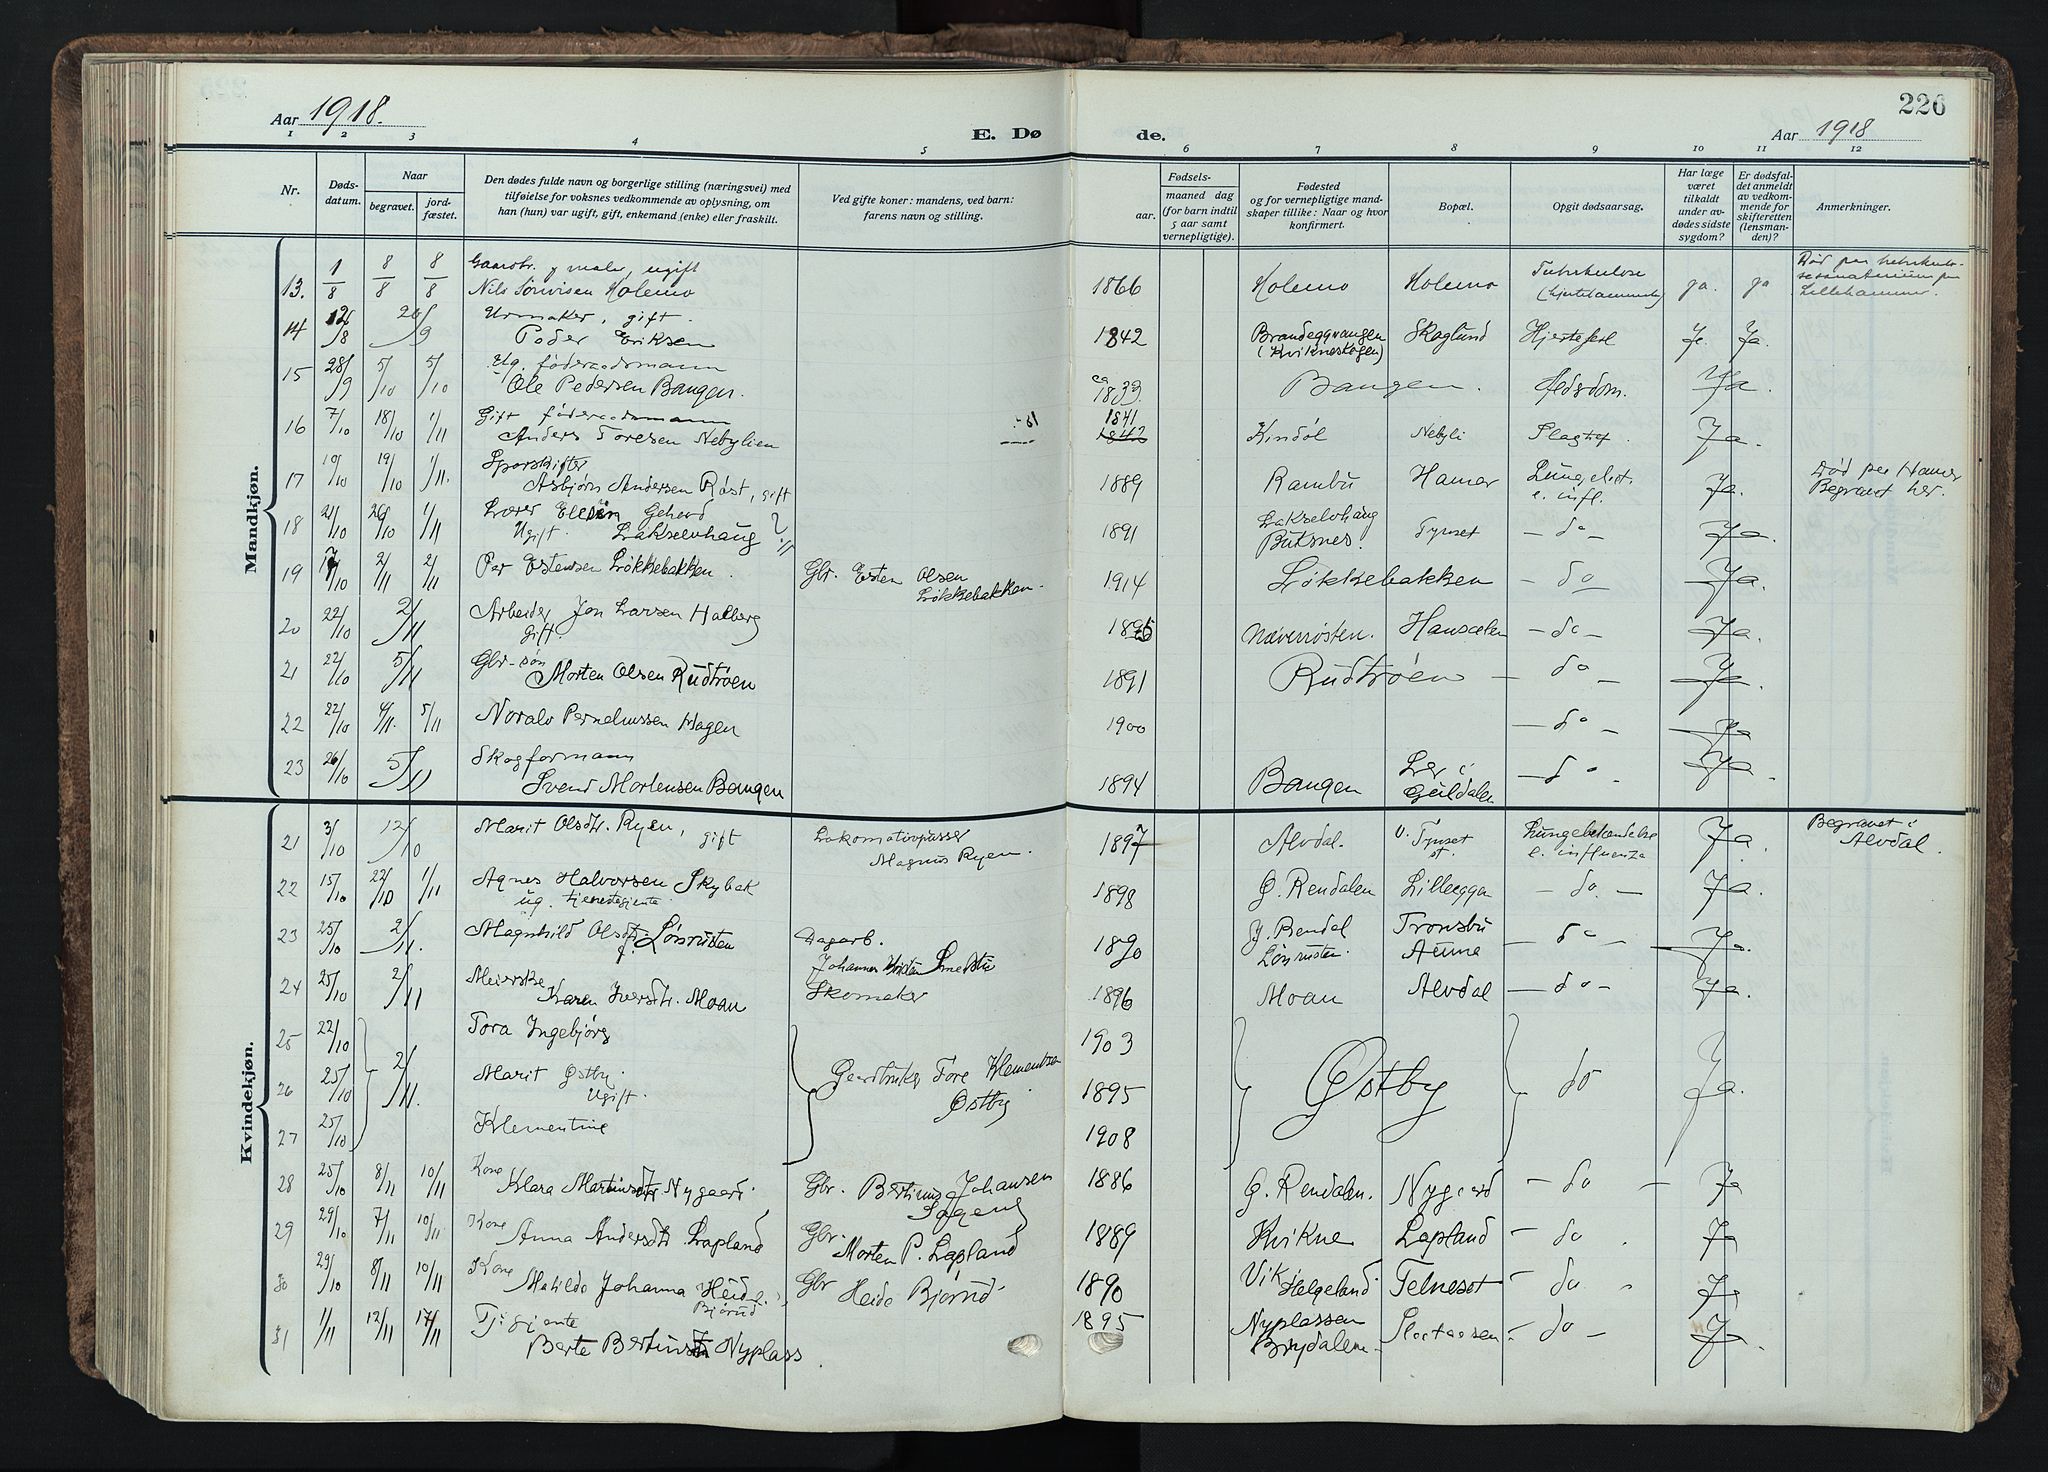 Aar 1918.
E. Dø
de.
Aar 1918
226
1 2 3 4 5 6 7 8 9 10 11 12
Nr.
Døds-
datum.
Naar
begravet.
jord-
fæstet.
Den dødes fulde navn og borgerlige stilling (næringsvei) med
tilføielse for voksnes vedkommende av oplysning, om
han (hun) var ugift, gift, enkemand (enke) eller fraskilt.
Ved gifte koner: mandens, ved barn:
farens navn og stilling.
aar.
Fødsels-
maaned dag
(for barn indtil
5 aar samt
vernepligtige).
Fødested
og for vernepligtige mand-
skaper tillike: Naar og hvor
konfirmert.
Bopæl.
Opgit dødsaarsag.
Har læge
været
tilkaldt
under av-
dødes sidste
sygdom?
Er dødsfal-
det anmeldt
av vedkom-
mende for
skifteretten
(lensman-
den)?
Anmerkninger.
Mandkjøn.
13. 1/8 8/8 8/8 maler, ugift
Nils Holemo 1866 Holemo Holemo Tuberkulose ja. ja
Lillehammer.
14 12/8 20/9 Urmaker, gift.
Peder Eriksen 1842 Brandeggvangen (Kvikneskogen) Skoglund Hjertefeil Ja.
15 28/9 5/10 5/10 Ug. føderaadsmann
Ole Pedersen Bangen. ca 1833. Bangen. Alderdom. Ja.
16 7/10 18/10 1/11 Gift føderaadsmann
Anders Toresen Nebylien 1841 1842 Kindøl Nebyli Slagtef. Ja.
17 10/10 19/10 1/11. Sporskifter
Asbjørn Andersen Røst, gift 1889 Rambu Hamar e. infl. Ja. Død paa Hamar
Begravet her.
18 21/10 26/10 1/11 Lærer
Ugift. Lakselvhaug 1891 Lakselvhaug
Buksnes. Tynset - do - Ja.
19 17/10 2/11 2/11 Per Estensen Løkkebakken. Gbr. Esten Olsen
Løkkebakken. 1914 Løkkebakken - do - Ja.
20 22/10 2/11 Arbeider Jon Larsen Halberg
gift Nævermosten. - do - Ja.
21 22/10 5/11 Gbr-søn
Morten Olsen Rudtrøen 1891 Rudtrøen - do - Ja.
22 22/10 4/11. 5/11 Noralv Hagen 1900 - do - Ja
23 26/10 5/11 Skogformann
Svend Mortensen Bangen 1894 Bangen - do - Ja
Kvindekjøn.
21 3/10 12/10 Marit Olsdtr. Ryen, gift Lokomotivpusser
Magnus Ryen. 1897 Alvdal. Tynset
st. Lungebetændelse
e. influenza Ja. Begravet i
Alvdal.
22 15/10 22/10 1/11 Agnes Halvorsen Skybak
ug. tjenestejente 1898 Ø. Rendalen Lilleeggen - do. - Ja.
23 25/10 2/11. Magnhild Olsdtr. Lønrusten Dagarb.
Johannes 1890 Y. Rendal
Lønrusten. Tronsbu
Aune - do - Ja.
24 25/10 2/11 Meierske
Karen Iversdtr. Moan Skomaker 1896 Moan Alvdal - do - Ja.
25 22/10 Tora Ingebjørg 1903
26 25/10 2/11. Marit Østby.
Ugift. Gaardbruker Tore Klementsen
Østby 1895 Østby do Ja.
27 25/10 Klementine 1908
28 25/10 8/11 10/11 Kone
Klara Martinsdtr Nygaard. Gbr. Bertinus Johansen 1886 Ø. Rendalen. Nygaard - do - Ja
29 29/10 7/11 10/11 Kone
Anna Andersdtr Lapland Gbr.
Morten P. Lapland 1889 Kvikne Lapland - do. Ja
30 29/10 8/11 10/11 Kone
Matilde Johanna Heide
Bjørud Gbr Heide Bjørud 1890 Vik Helgeland Telneset - do " Ja
31 1/11 12/11 17/11 Tj. gjente
Berte Bertinsdtr Nyplass. 1895 Nyplassen
Brydalen. - do - Ja